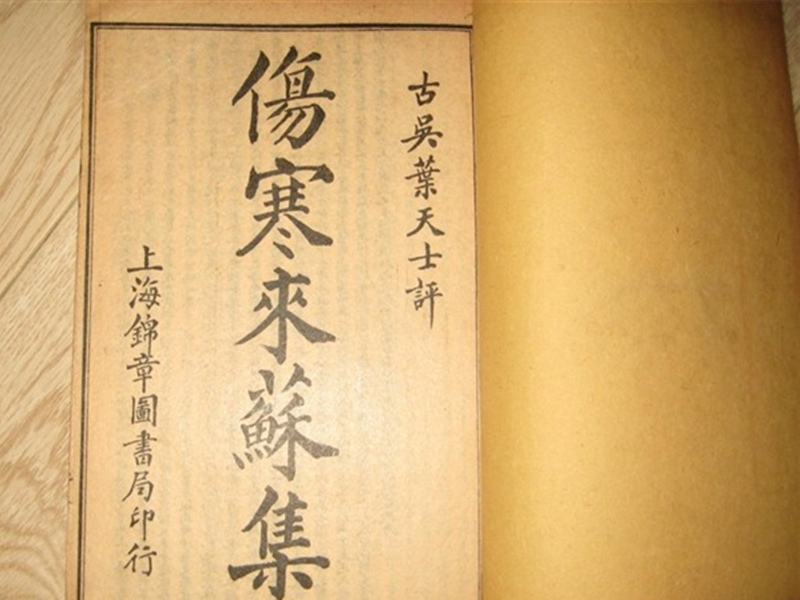 古吳葉天士評
傷寒來蘇集
上海錦章圖書局印行